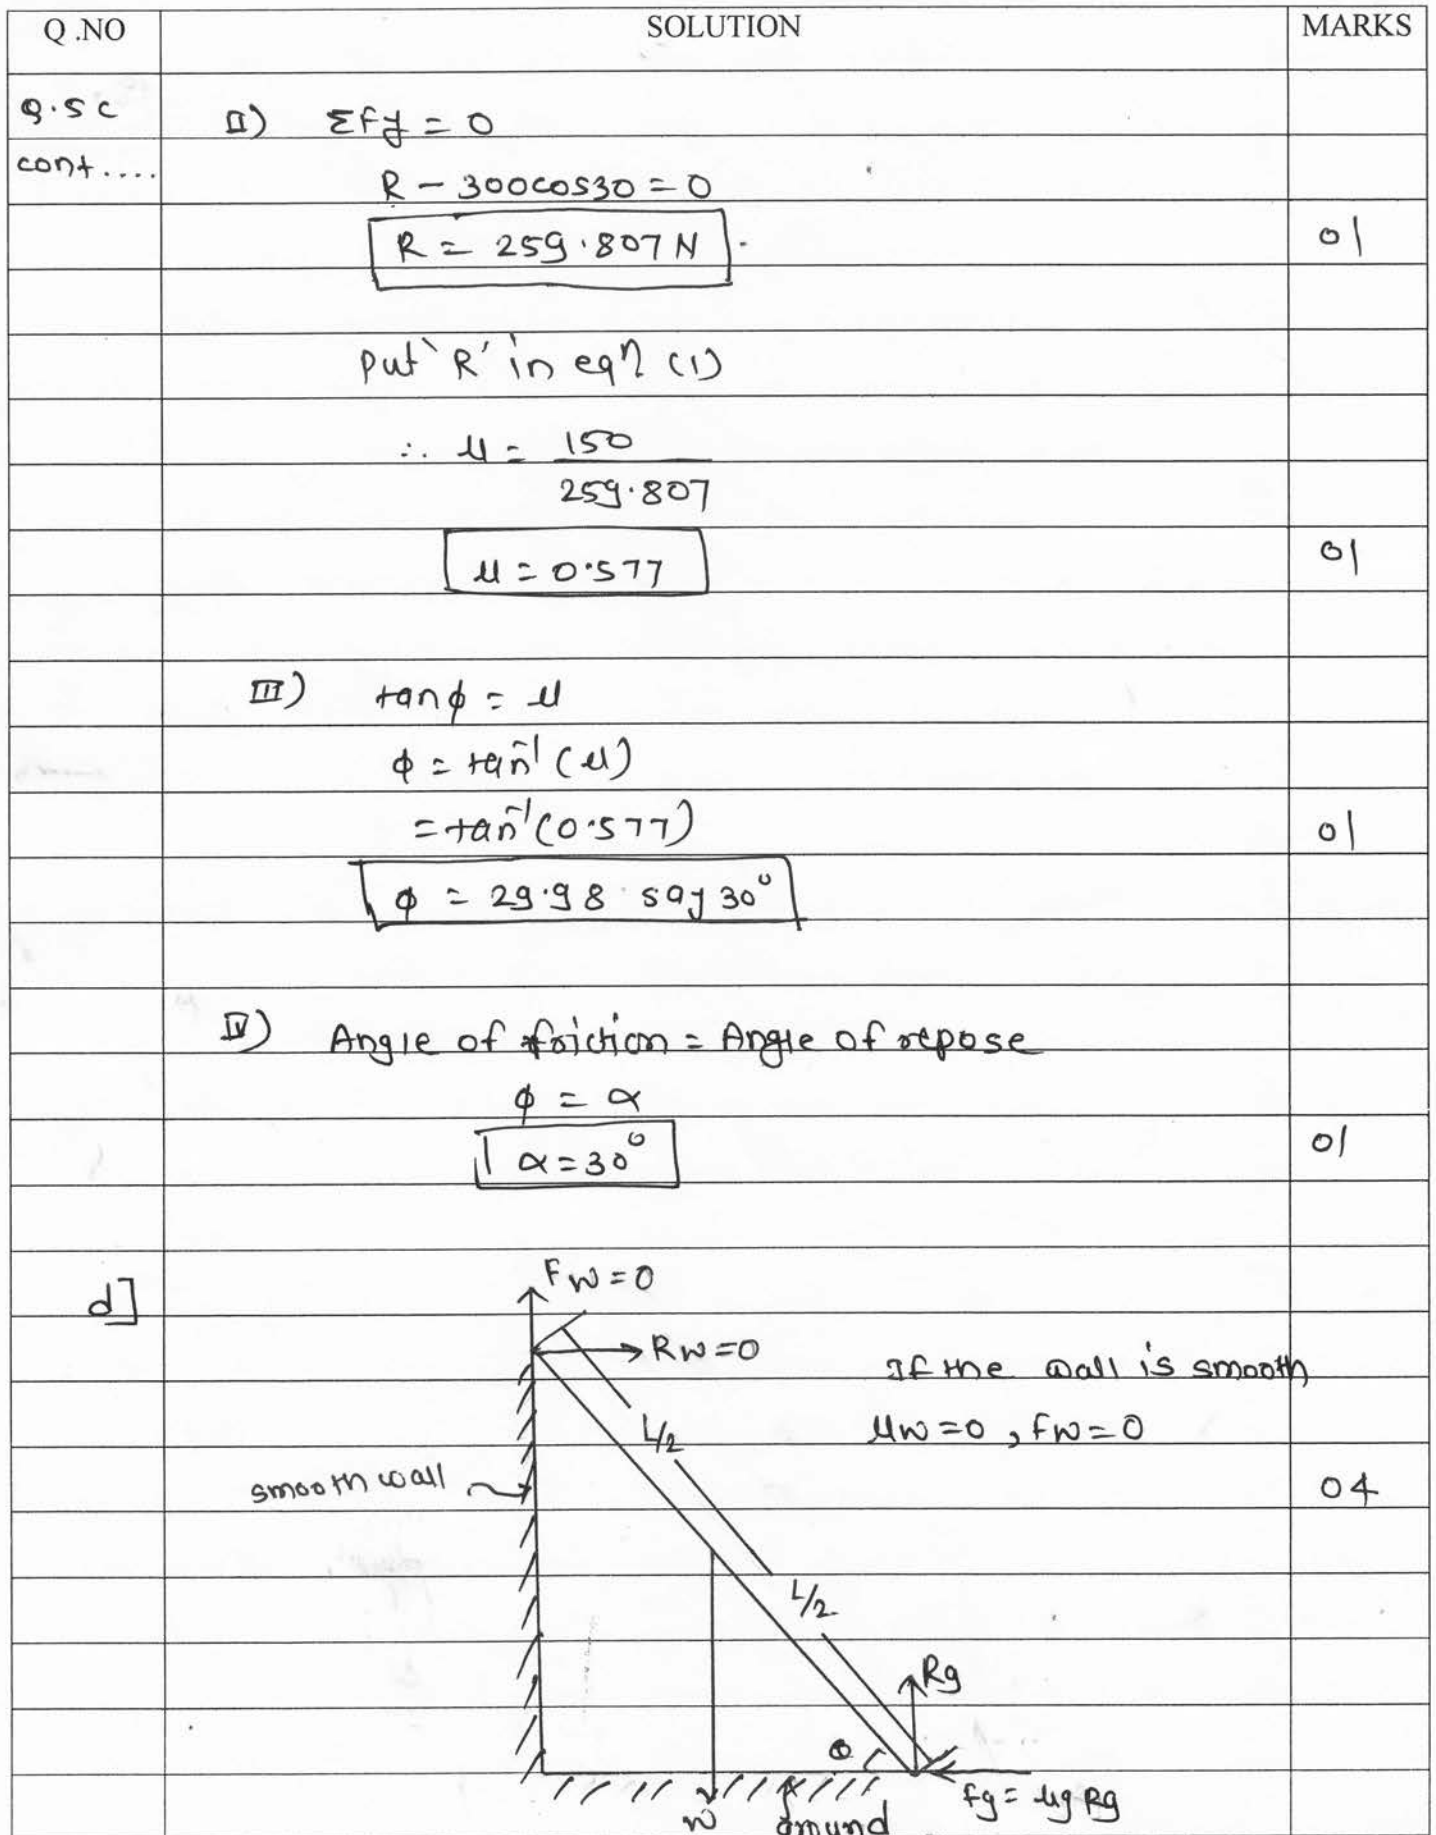 Q .NO SOLUTION MARKS
Q.5 C II) Σfy = 0
cont.... R - 300cos30 = 0
R = 259.807 N . 01
Put `R' in eqn (1)
∴ μ = 150
259.807
μ = 0.577 01
III) tanϕ = μ
ϕ = tan⁻¹ (μ)
= tan⁻¹ (0.577) 01
ϕ = 29.98 say 30°
IV) Angle of friction = Angle of repose
ϕ = α
α = 30° 01
d] Fw = 0
Rw = 0 If the wall is smooth
L/2 μw = 0 , fw = 0
smooth wall 04
L/2
Rg
θ
fg = μg Rg
w ground